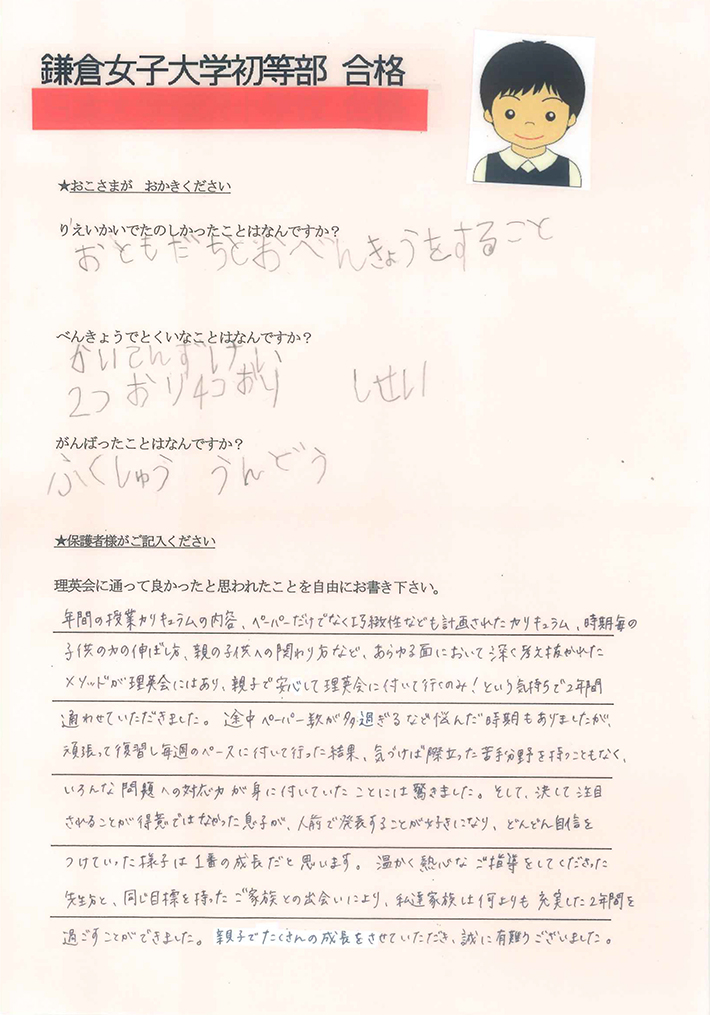 鎌倉女子大学初等部 合格
★おこさまが おかきください
りえいかいでたのしかったことはなんですか？
おともだちとおべんきょうをすること
べんきょうでとくいなことはなんですか？
かいてんずけい
2つおり4つおり しせい
がんばったことはなんですか？
ふくしゅう うんどう
★保護者様がご記入ください
理英会に通って良かったと思われたことを自由にお書き下さい。
年間の授業カリキュラムの内容、ペーパーだけでなく巧緻性なども計画されたカリキュラム、時期毎の
子供の力の伸ばし方、親の子供への関わり方など、あらゆる面において深く考え抜かれた
メソッドが理英会にはあり、親子で安心して理英会に付いて行くのみ！という気持ちで2年間
通わせていただきました。途中ペーパー数が多過ぎるなど悩んだ時期もありましたが、
頑張って復習し毎週のペースに付いて行った結果、気づけば際立った苦手分野を持つこともなく、
いろんな問題への対応力が身に付いていたことには驚きました。そして、決して注目
されることが得意ではなかった息子が、人前で発表することが好きになり、どんどん自信を
つけていった様子は1番の成長だと思います。温かく熱心なご指導をしてくださった
先生方と、同じ目標を持ったご家族との出会いにより、私達家族は何よりも充実した2年間を
過ごすことができました。親子でたくさんの成長をさせていただき、誠に有難うございました。